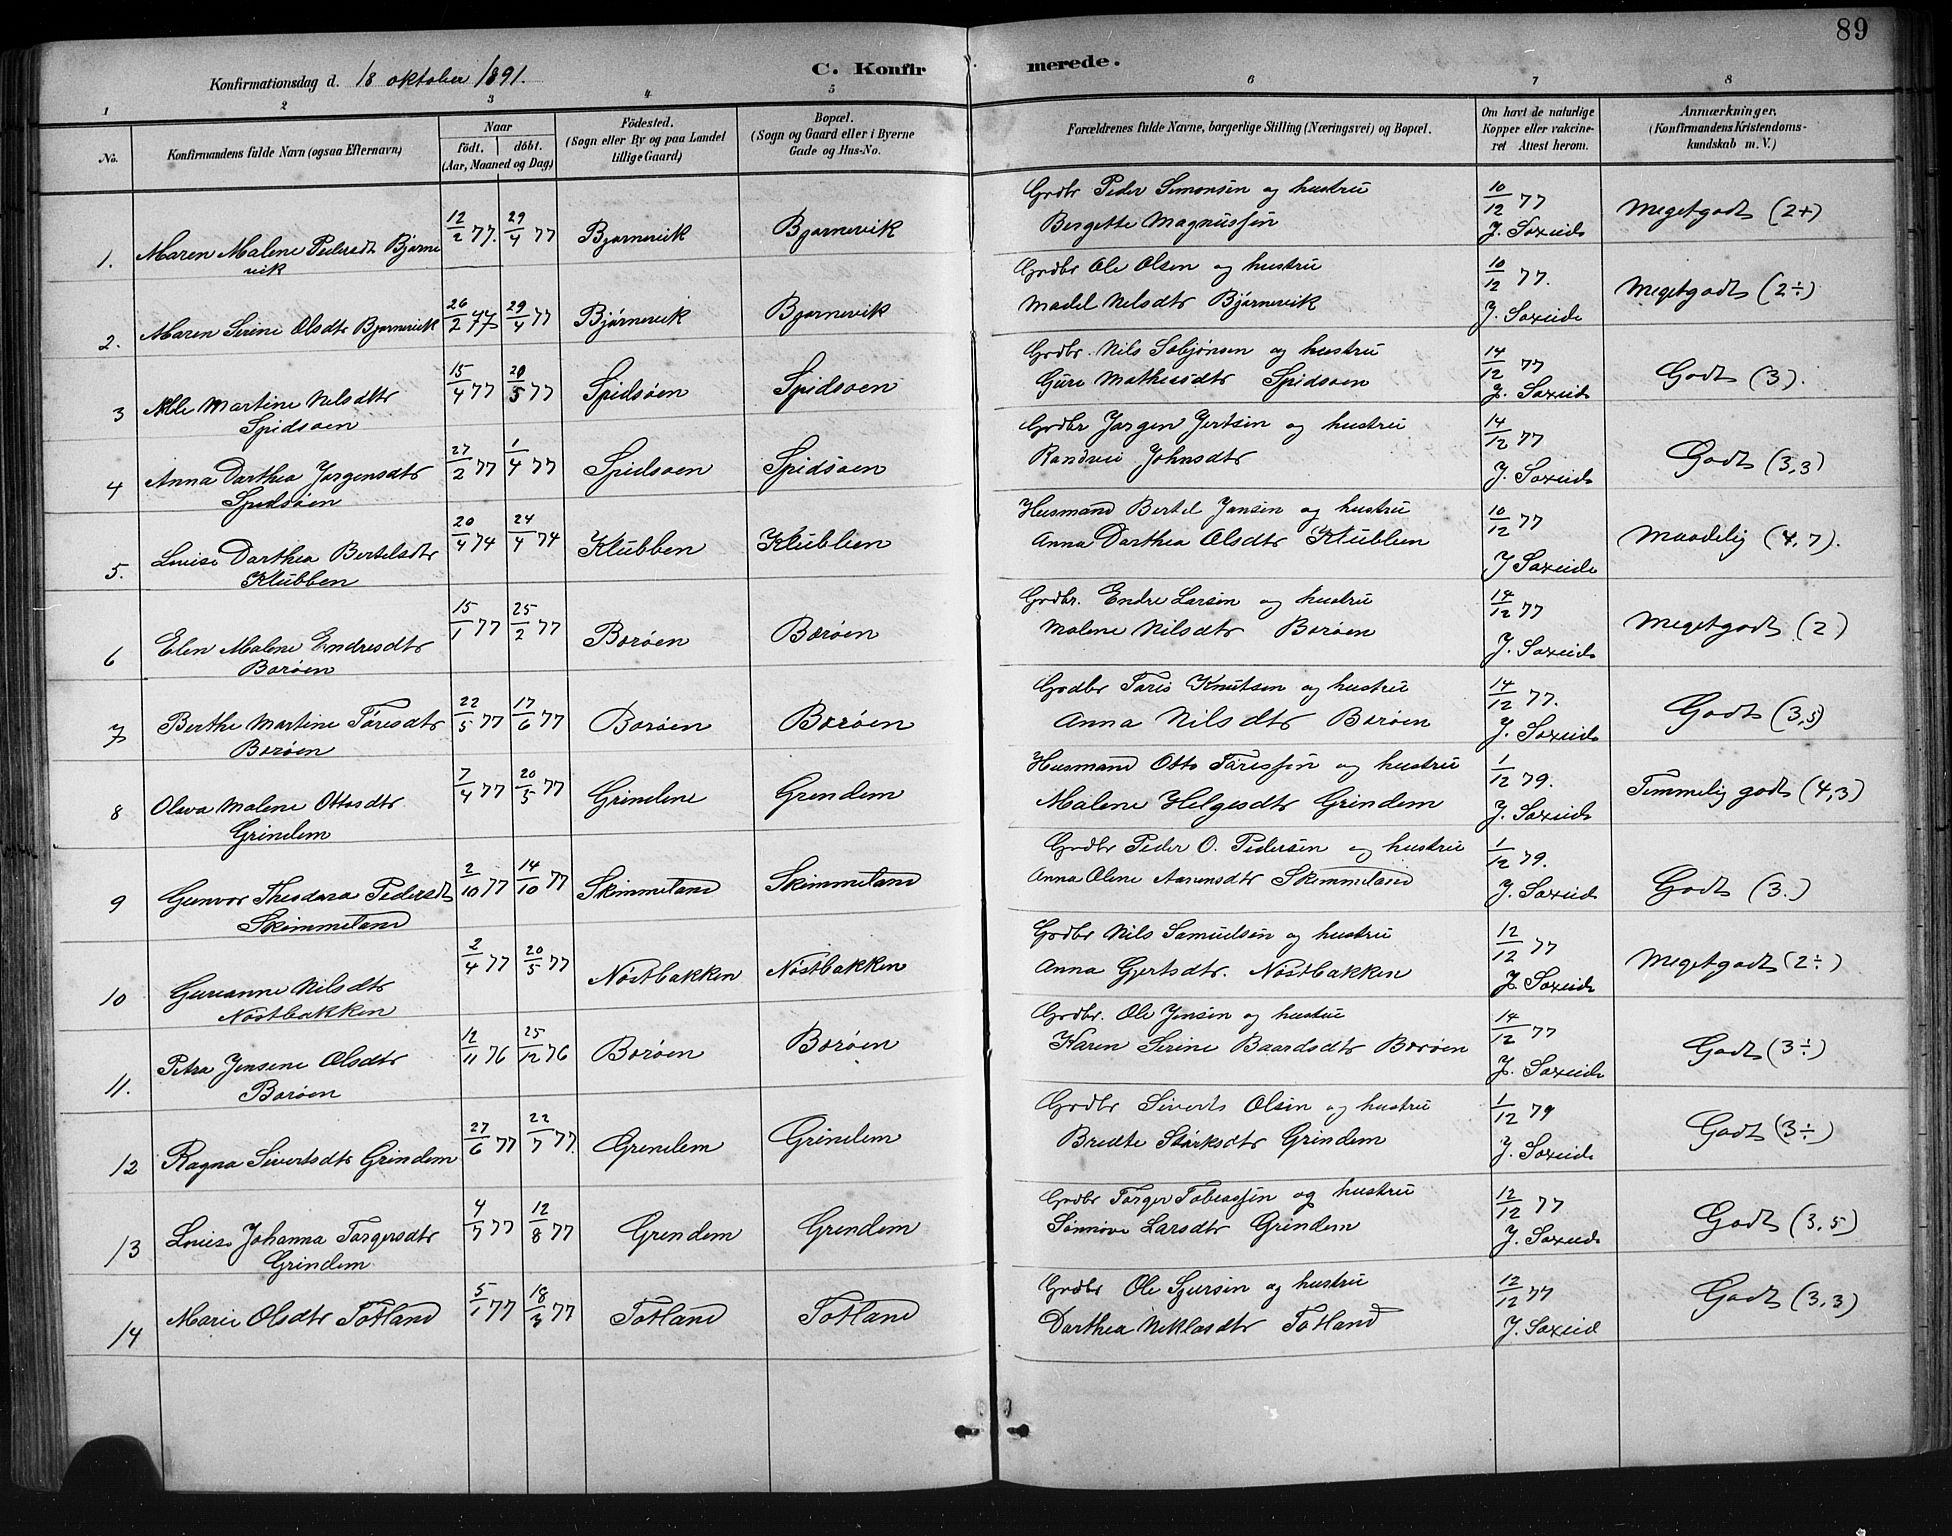 89
Konfirmationsdag d. 18 oktober 1891.
C. Konfirmerede.
1 2 3 4 5 6 7 8
No. Konfirmandens fulde Navn (ogsaa Efternavn) Naar födt. döbt. (Aar, Maaned og Dag) Födested. (Sogn eller By og paa Landet tillige Gaard) Bopæl. (Sogn og Gaard eller i Byerne Gade og Hus-No. Forældrenes fulde Navne, borgerlige Stilling (Næringsvei) og Bopæl. Om havt de naturlige Kopper eller vakcineret Attest herom. Anmærkninger. (Konfirmandens Kristendomskundskab m. V.)
1. Maren Malene Pedersdt Bjørnevik 12/2 77. 29/4 77 Bjørnevik Bjørnevik Grdbr Peder Simonsen og hustru Bergette Magnussen 10/12 77 J. Soxeide Megetgodt (2+)
2. Maren Serine Olsdtr Bjørnevik 26/2 77 29/4 77 Bjørnevik Bjørnevik Grdbr Ole Olsen og hustru Madel Nilsdtr Bjørnevik 10/12 77. J. Soxeide Megetgodt (2÷)
3 Martine Nilsdtr Spidsøen 15/4 77 20/5 77 Spidsøen Spidsøen Grdbr. Nils og hustru Guri Mathiasdtr Spidsøen 14/12 77 J. Soxeide Godt (3).
4 Anna Darthea Jørgensdtr Spidsøen 27/2 77 1/4 77 Spidsøen Spidsøen Grdbr Jørgen Jertsen og hustru Randvei Johnsdtr 14/12 77 J. Soxeide Godt (3,3)
5. Louise Darthea Bertelsdtr Klubben 20/4 74 24/4 74 Klubben Klubben Husmand Bertel Jansen og hustru Anna Darthea Olsdtr Klubben 10/12 77 J Soxeide Maadelig (4,7).
6 Elen Malene Endresdtr Borøen 15/1 77 25/2 77 Borøen Borøen Grdbr. Endre Larsen og hustru Malene Nilsdtr Borøen 14/12 77 J. Soxeide Megetgodt (2)
7 Berthe Martine Tøresdtr Borøen 22/5 77 17/6 77 Borøen Borøen Grdbr Tøris Knutsen og hustru Anna Nilsdtr Borøen 14/12 77. J. Soxeide Godt (3,5)
8 Olava Malene Ottosdtr Grindem 7/4 77 20/5 77 Grindem Grindem Husmand Otto Tørissen og hustru Malene Helgesdtr Grindem 1/12 79. J. Soxeide Temmelig godt (4,3)
9 Gunvor Theodora Pedersdt Skimmeland 2/10 77 14/10 77 Skimmeland Skimmeland Grdbr Peder O. Pedersen og hustru Anna Olene Aanensdtr Skimmeland 1/12 79. J. Soxeide Godt (3.)
10 Gurianne Nilsdtr Nøstbakken 2/4 77 20/5 77 Nøstbakken Nøstbakken Grdbr Nils Samuelsen og hustru Anna Gjertsdtr. Nøstbakken 12/12 77 J. Soxeide Megetgodt (2÷)
11. Petra Jensene Olsdtr Borøen 12/11 76 25/12 76 Borøen Borøen Grdbr. Ole Jensen og hustru Karen Serine Baardsdtr Borøen 14/12 77 J. Soxeide Godt (3÷)
12 Ragna Sivertsdtr Grindem 27/6 77 22/7 77. Grindem Grindem Grdbr Siverts Olsen og hustru Bredte Størksdtr Grindem 1/12 79 J. Soxeide Godt (3÷)
13 Louise Johanna Torgersdtr Grindem 4/7 77 12/8 77 Grindem Grindem Grdbr Torger Tobiassen og hustru Sønnøve Larsdtr Grindem 12/12 77 J. Soxeide Godt (3,5)
14 Marie Olsdtr Totland 5/1 77 18/3 77 Totland Totland Grdbr Ole Sjursen og hustru Darthea Niklasdtr Totland 12/12 77 J. Soxeid Godt (3,3)